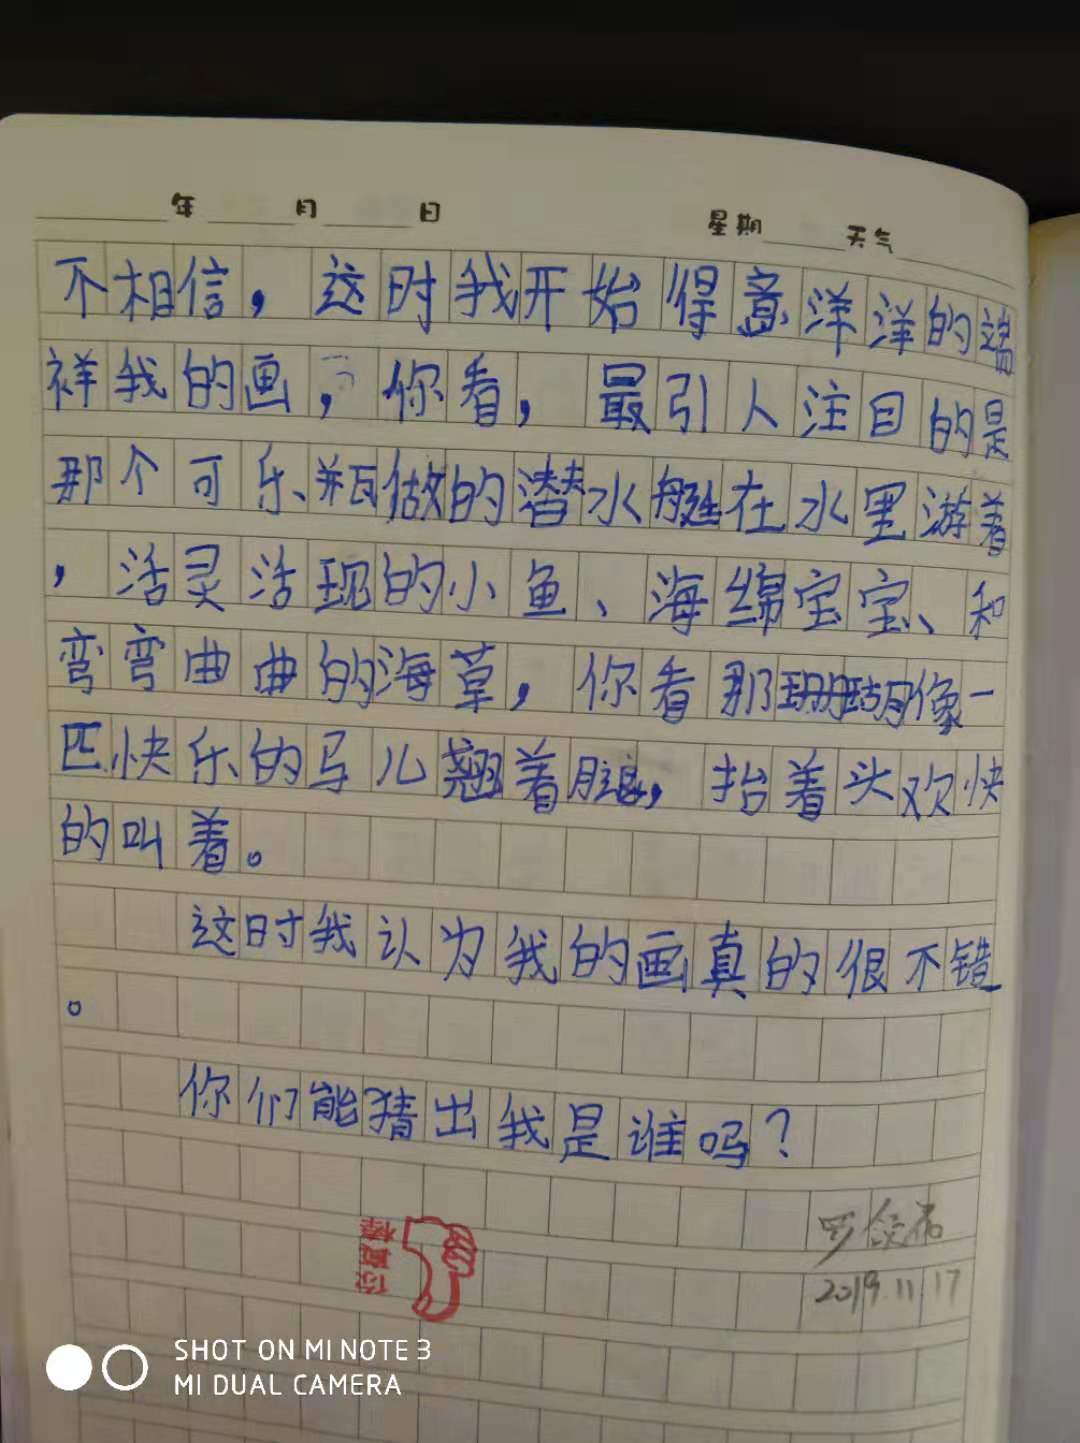 年 月 日 星期 天气
不相信，这时我开始得意洋洋的端
祥我的画，你看，最引人注目的是
那个可乐瓶做的潜水艇在水里游着
，活灵活现的小鱼、海绵宝宝、和
弯弯曲曲的海草，你看那珊瑚像一
匹快乐的马儿翘着腿，抬着头欢快
的叫着。
这时我认为我的画真的很不错
。
你们能猜出我是谁吗？
你真棒
2019.11.17
SHOT ON MI NOTE 3
MI DUAL CAMERA